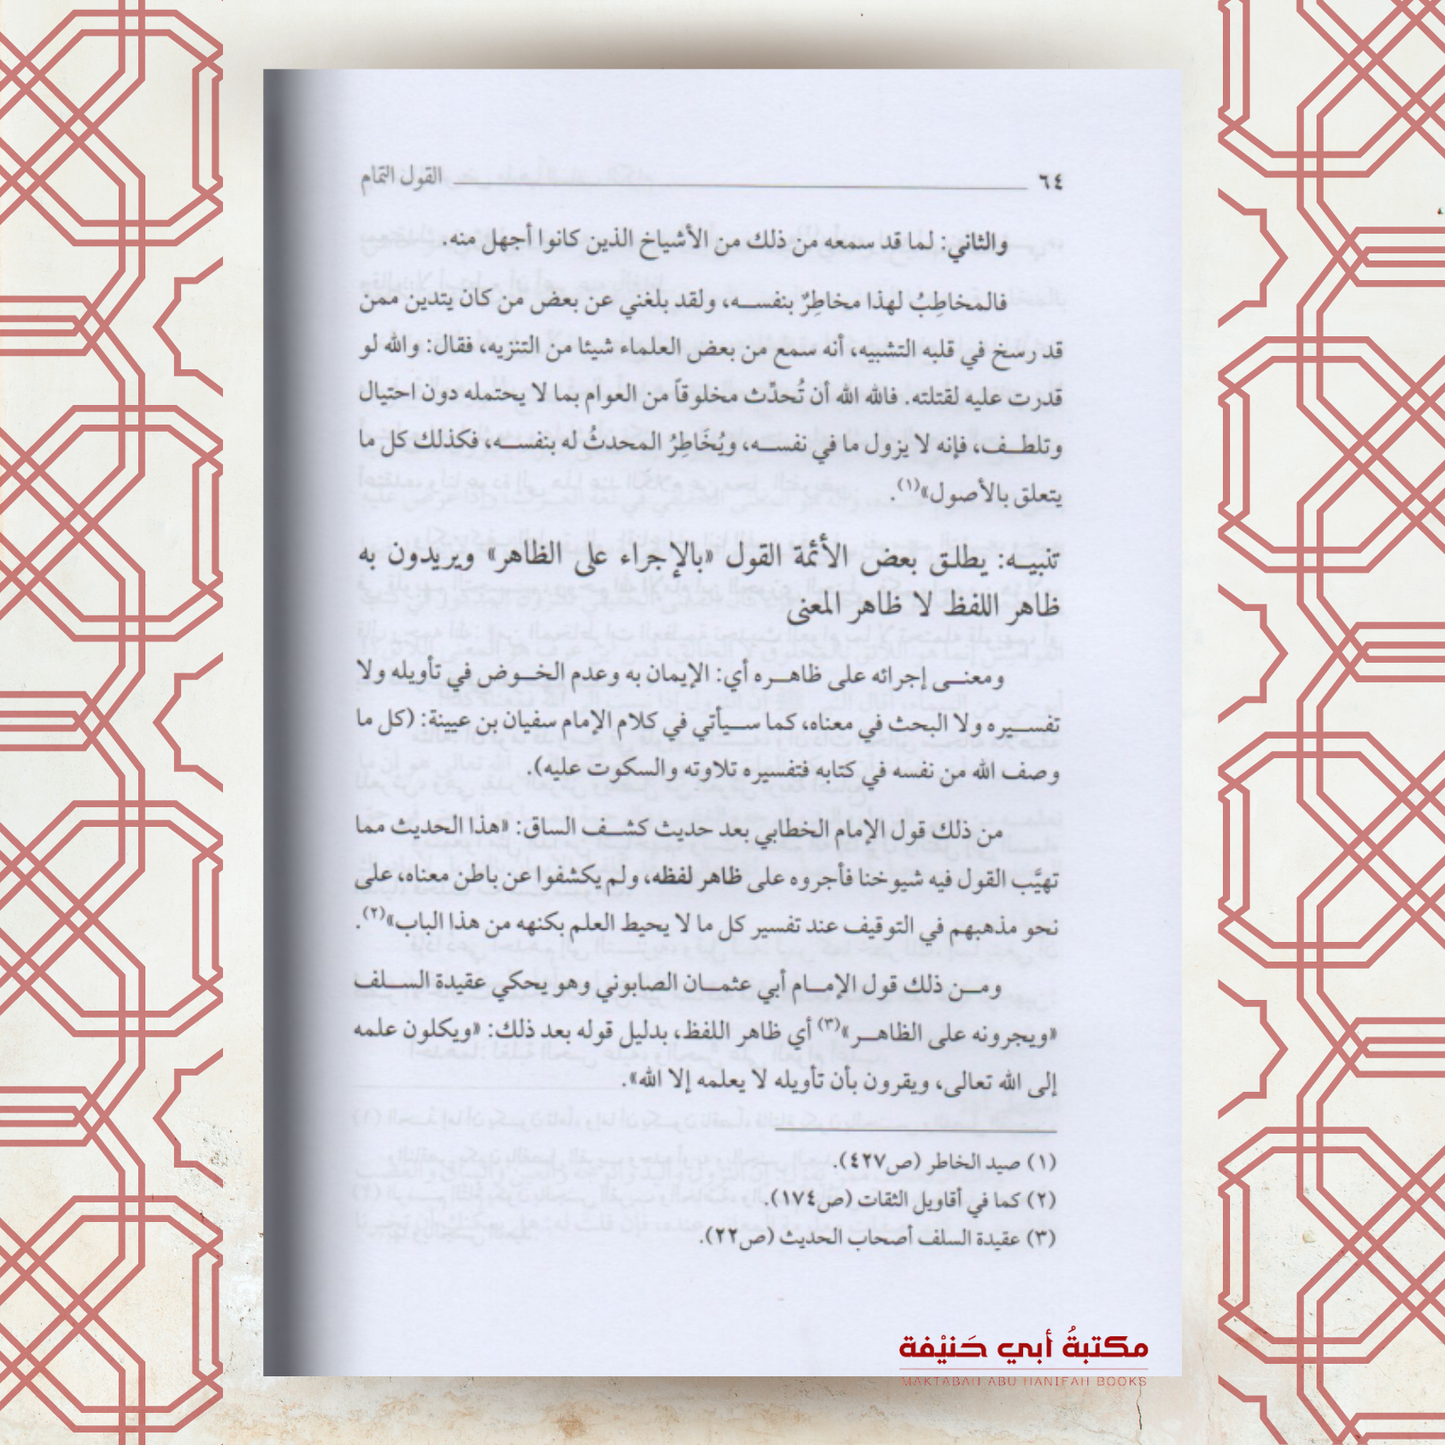 ٦٤ القول التمام
والثاني: لما قد سمعه من ذلك من الأشياخ الذين كانوا أجهل منه.
فالمخاطِبُ لهذا مخاطِرٌ بنفسه، ولقد بلغني عن بعض من كان يتدين ممن
قد رسخ في قلبه التشبيه، أنه سمع من بعض العلماء شيئا من التنزيه، فقال: والله لو
قدرت عليه لقتلته. فالله الله أن تُحدِّث مخلوقاً من العوام بما لا يحتمله دون احتيال
وتلطف، فإنه لا يزول ما في نفسه، ويُخَاطِرُ المحدثُ له بنفسه، فكذلك كل ما
يتعلق بالأصول»(١).
تنبيه: يطلق بعض الأئمة القول «بالإجراء على الظاهر» ويريدون به
ظاهر اللفظ لا ظاهر المعنى
ومعنى إجرائه على ظاهره أي: الإيمان به وعدم الخوض في تأويله ولا
تفسيره ولا البحث في معناه، كما سيأتي في كلام الإمام سفيان بن عيينة: (كل ما
وصف الله من نفسه في كتابه فتفسيره تلاوته والسكوت عليه).
من ذلك قول الإمام الخطابي بعد حديث كشف الساق: «هذا الحديث مما
تهيَّب القول فيه شيوخنا فأجروه على ظاهر لفظه، ولم يكشفوا عن باطن معناه، على
نحو مذهبهم في التوقيف عند تفسير كل ما لا يحيط العلم بكنهه من هذا الباب»(٢).
ومن ذلك قول الإمام أبي عثمان الصابوني وهو يحكي عقيدة السلف
«ويجرونه على الظاهر»(٣) أي ظاهر اللفظ، بدليل قوله بعد ذلك: «ويكلون علمه
إلى الله تعالى، ويقرون بأن تأويله لا يعلمه إلا الله».
(١) صيد الخاطر (ص٤٢٧).
(٢) كما في أقاويل الثقات (ص١٧٤).
(٣) عقيدة السلف أصحاب الحديث (ص٢٢).
مكتبةُ أبي حَنيْفة
MAKTABAH ABU HANIFAH BOOKS